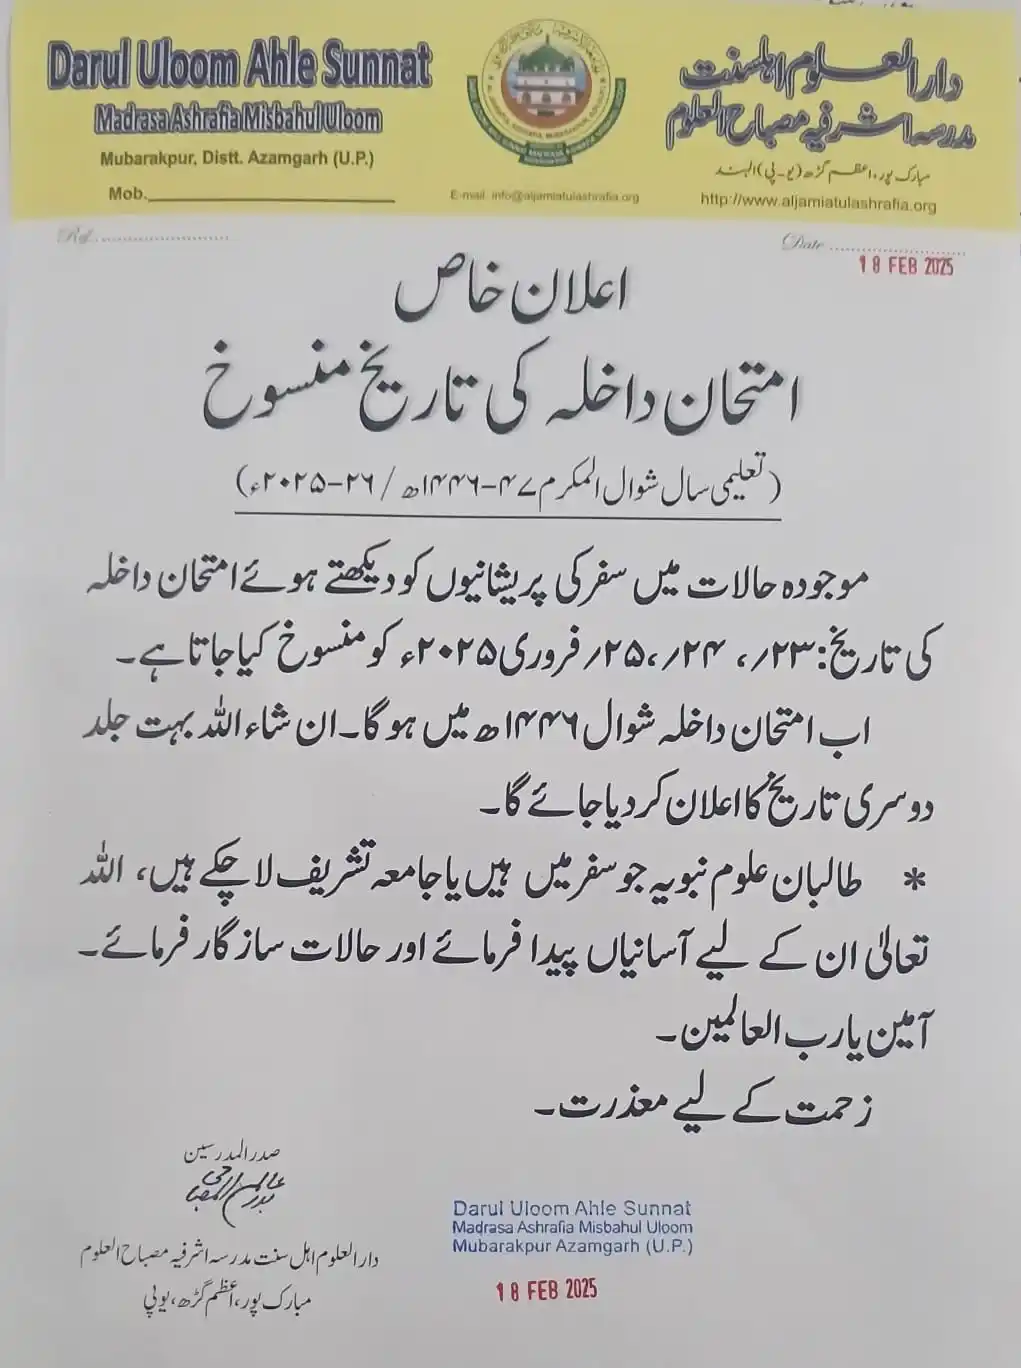 Darul Uloom Ahle Sunnat
Madrasa Ashrafia Misbahul Uloom
Mubarakpur, Distt. Azamgarh (U.P.)
Mob.
E-mail: info@aljamiatulashrafia.org
دارالعلوم اہلسنت
مدرسہ اشرفیہ مصباح العلوم
مبارک پور، اعظم گڑھ (یو-پی) الہند
http://www.aljamiatulashrafia.org
Ref.
Date
18 FEB 2025
اعلان خاص
امتحان داخلہ کی تاریخ منسوخ
(تعلیمی سال شوال المکرم ۴۷-۱۴۴۶ھ / ۲۶-۲۰۲۵ء)
موجودہ حالات میں سفر کی پریشانیوں کو دیکھتے ہوئے امتحان داخلہ
کی تاریخ: ۲۳؍، ۲۴؍، ۲۵؍ فروری ۲۰۲۵ء کو منسوخ کیا جاتا ہے۔
اب امتحان داخلہ شوال ۱۴۴۶ھ میں ہوگا۔ ان شاء اللہ بہت جلد
دوسری تاریخ کا اعلان کر دیا جائے گا۔
* طالبان علوم نبویہ جو سفر میں ہیں یا جامعہ تشریف لا چکے ہیں، اللہ
تعالیٰ ان کے لیے آسانیاں پیدا فرمائے اور حالات سازگار فرمائے۔
آمین یارب العالمین۔
زحمت کے لیے معذرت۔
صدر المدرسین
دارالعلوم اہل سنت مدرسہ اشرفیہ مصباح العلوم
مبارک پور، اعظم گڑھ، یوپی
Darul Uloom Ahle Sunnat
Madrasa Ashrafia Misbahul Uloom
Mubarakpur Azamgarh (U.P.)
18 FEB 2025